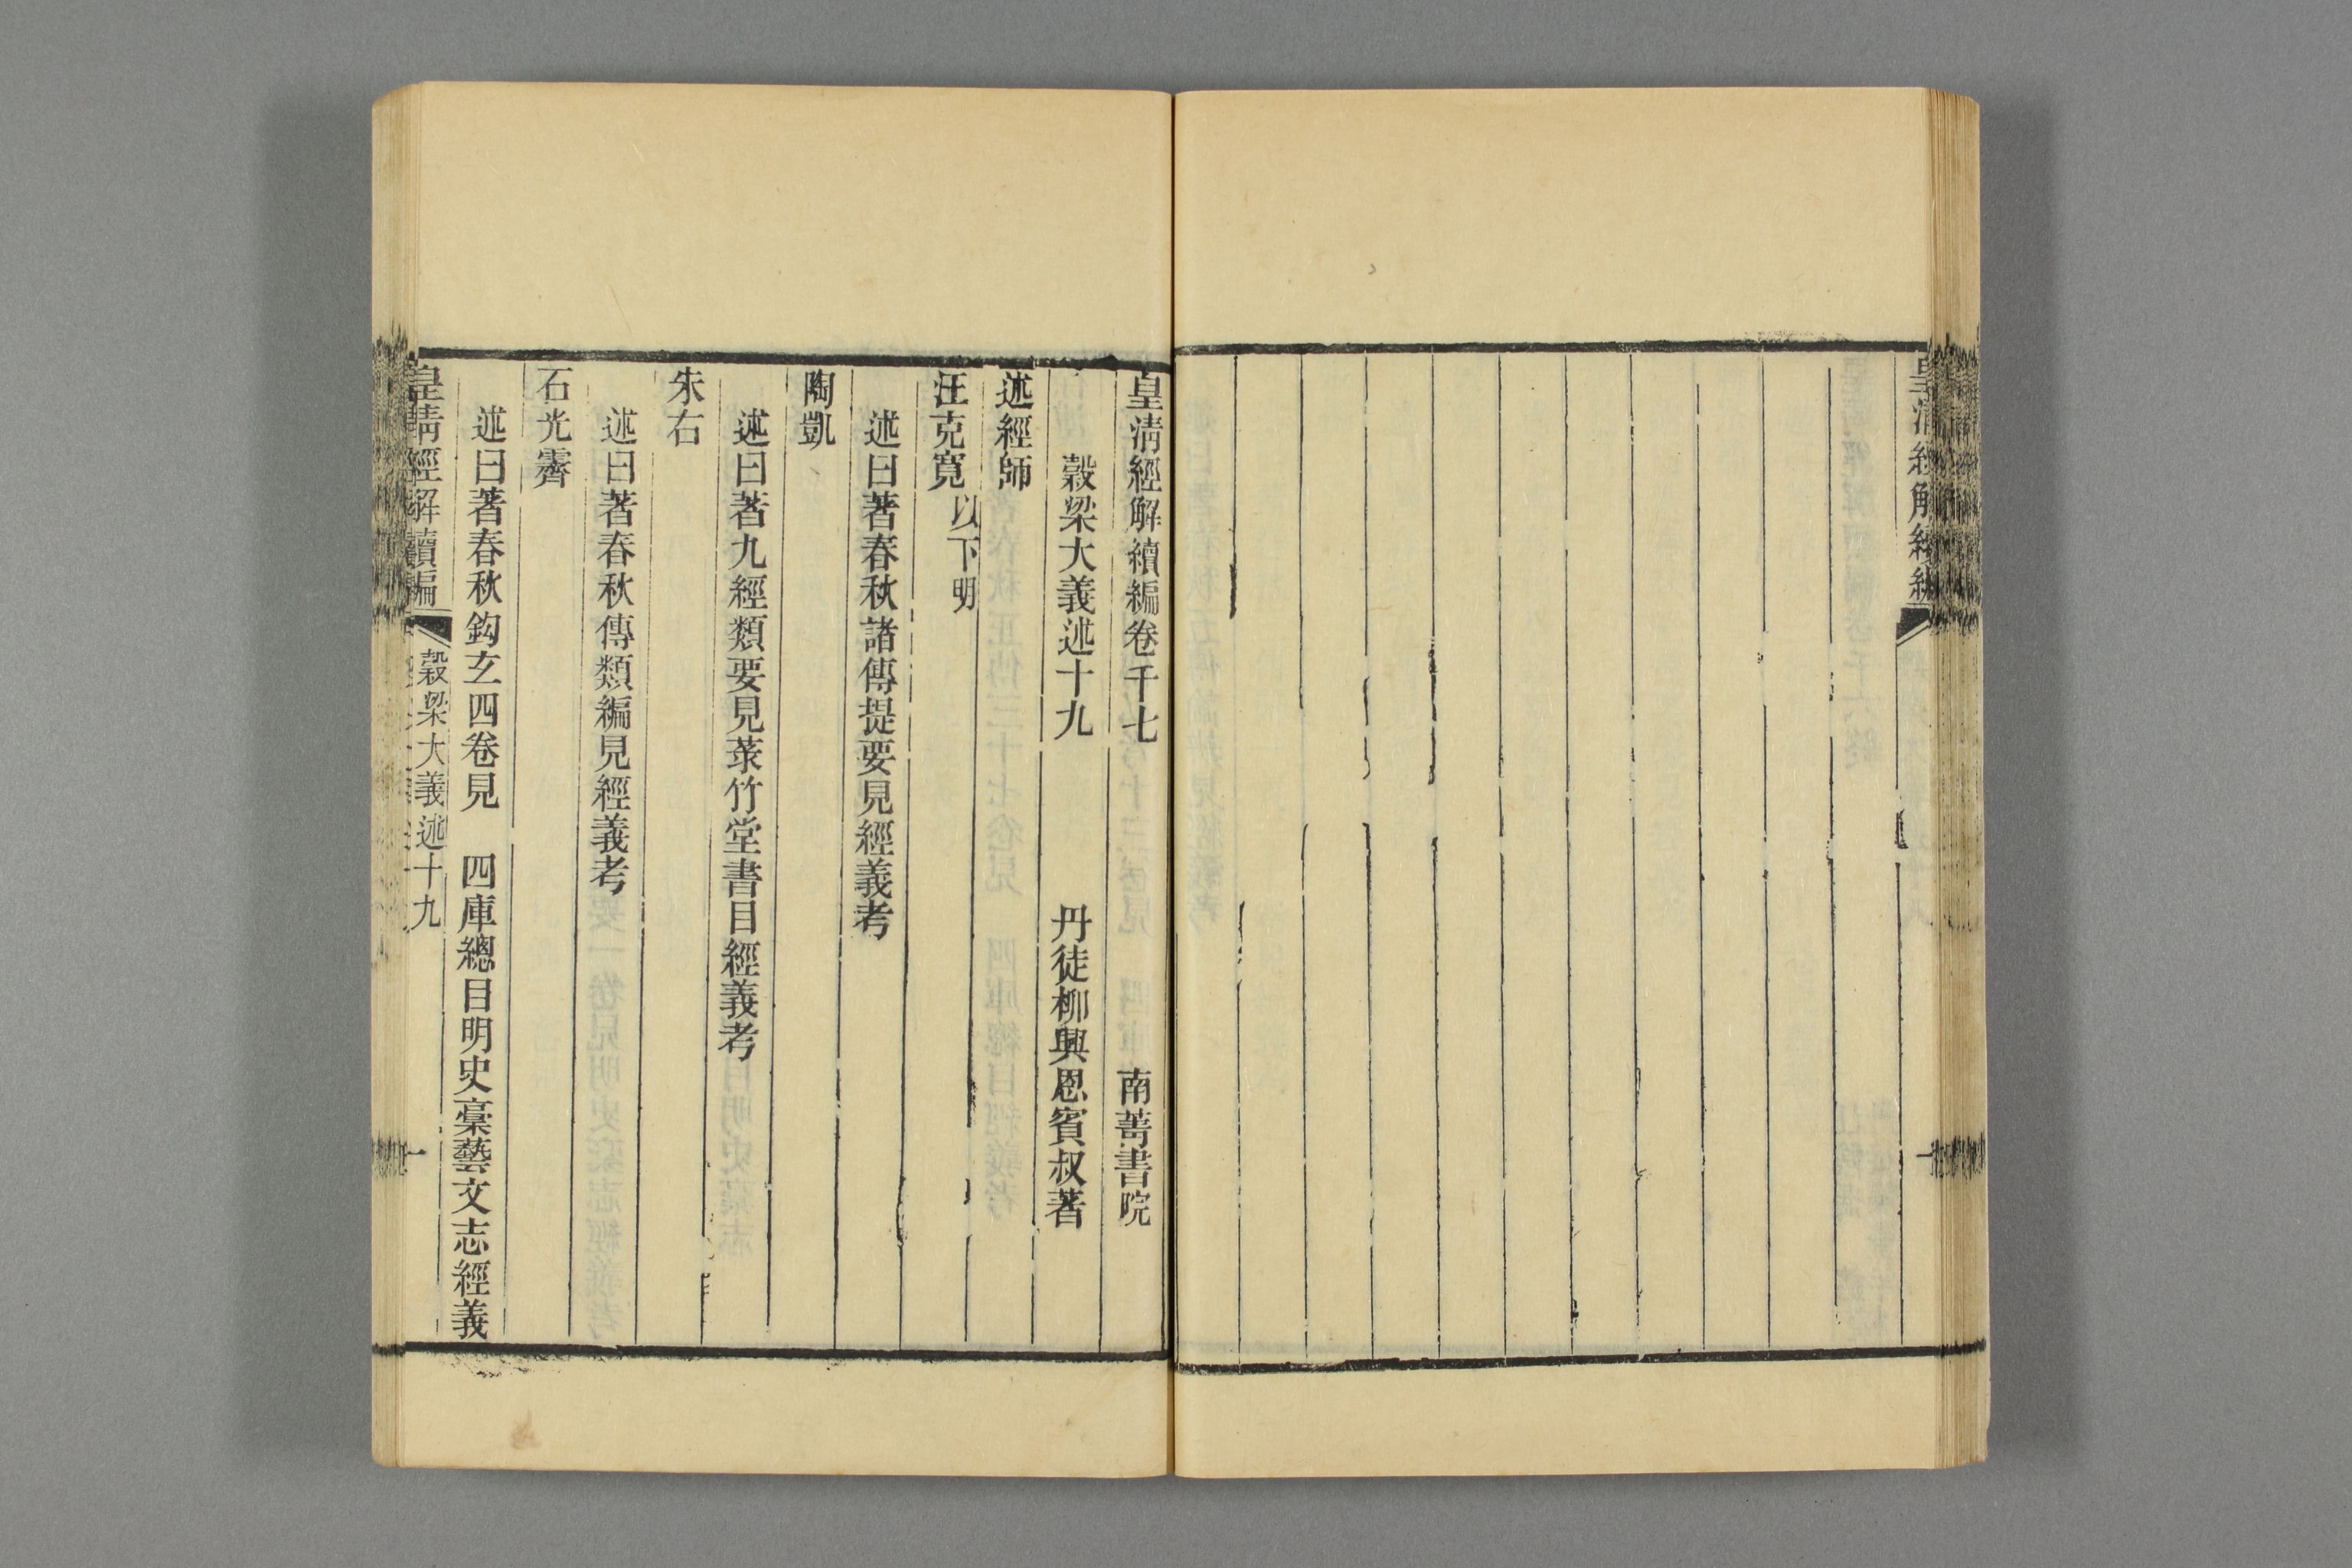 皇清經解續編
皇清經解續編卷千七　南菁書院
穀梁大義述十九　丹徒柳興恩賓叔著
述經師
汪克寬以下明
述曰著春秋諸傳提要見經義考
陶凱
述曰著九經類要見菉竹堂書目經義考
朱右
述曰著春秋傳類編見經義考
石光霽
述曰著春秋鈎玄四卷見　四庫總目明史稾藝文志經義
皇清經解續編　穀梁大義述十九　一